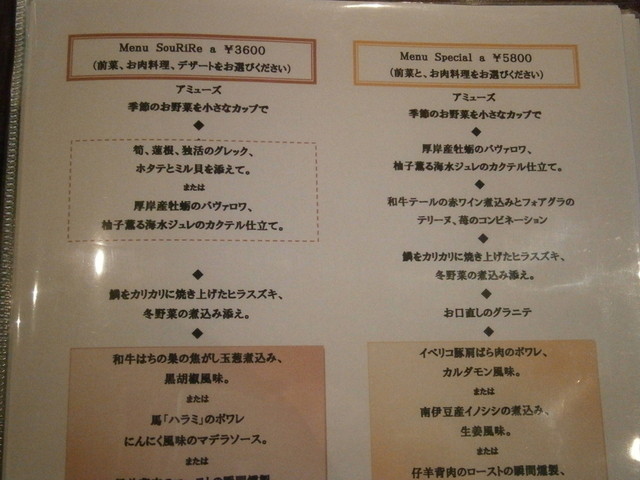 Menu SouRiRe a ￥3600
(前菜、お肉料理、デザートをお選びください)
アミューズ
季節のお野菜を小さなカップで
◆
筍、蓮根、独活のグレック、
ホタテとミル貝を添えて。
または
厚岸産牡蛎のババァロワ、
柚子薫る海水ジュレのカクテル仕立て。
◆
鱗をカリカリに焼き上げたヒラスズキ、
冬野菜の煮込み添え。
◆
和牛はちの巣の焦がし玉葱煮込み、
黒胡椒風味。
または
馬「ハラミ」のポワレ
にんにく風味のマデラソース。
または
Menu Special a ￥5800
(前菜と、お肉料理をお選びください)
アミューズ
季節のお野菜を小さなカップで
◆
厚岸産牡蛎のババァロワ、
柚子薫る海水ジュレのカクテル仕立て。
◆
和牛テールの赤ワイン煮込みとフォアグラの
テリーヌ、苺のコンビネーション
◆
鱗をカリカリに焼き上げたヒラスズキ、
冬野菜の煮込み添え。
◆
お口直しのグラニテ
◆
イベリコ豚肩ばら肉のポワレ、
カルダモン風味。
または
南伊豆産イノシシの煮込み、
生姜風味。
または
仔羊背肉のローストの瞬間燻製、